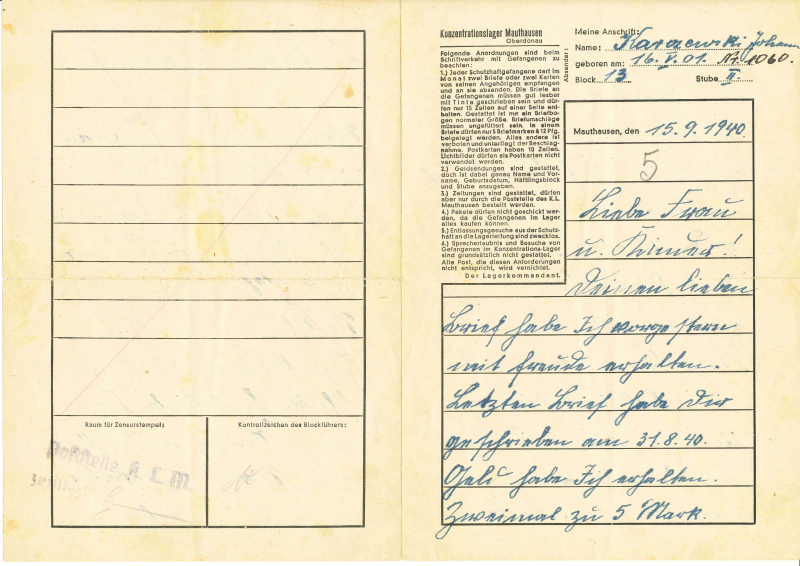 Raum für Zensurstempel:
Kontrollzeichen des Blockführers:
Poststelle K. L. M.
Konzentrationslager Mauthausen
Oberdonau
Folgende Anordnungen sind beim
Schriftverkehr mit Gefangenen zu
beachten:
1.) Jeder Schutzhaftgefangene darf im
Monat zwei Briefe oder zwei Karten
von seinen Angehörigen empfangen
und an sie absenden. Die Briefe an
die Gefangenen müssen gut lesbar
mit Tinte geschrieben sein und dür-
fen nur 15 Zeilen auf einer Seite ent-
halten. Gestattet ist nur ein Briefbo-
gen normaler Größe. Briefumschläge
müssen ungefüttert sein. In einem
Briefe dürfen nur 5 Briefmarken à 12 Pfg.
beigelegt werden. Alles andere ist
verboten und unterliegt der Beschlag-
nahme. Postkarten haben 10 Zeilen.
Lichtbilder dürfen als Postkarten nicht
verwendet werden.
2.) Geldsendungen sind gestattet,
doch ist dabei genau Name und Vor-
name, Geburtsdatum, Häftlingsblock
und Stube anzugeben.
3.) Zeitungen sind gestattet, dürfen
aber nur durch die Poststelle des K.L.
Mauthausen bestellt werden.
4.) Pakete dürfen nicht geschickt wer-
den, da die Gefangenen im Lager
alles kaufen können.
5.) Entlassungsgesuche aus der Schutz-
haft an die Lagerleitung sind zwecklos.
6.) Sprecherlaubnis und Besuche von
Gefangenen im Konzentrations-Lager
sind grundsätzlich nicht gestattet.
Alle Post, die diesen Anforderungen
nicht entspricht, wird vernichtet.
Der Lagerkommandant.
Absender:
Meine Anschrift:
Name: Karzewski Johann
geboren am: 16. V. 01. Nr. 1060.
Block 13 Stube II
Mauthausen, den 15. 9. 1940.
5
Liebe Frau
u. Kinder!
Deinen lieben
Brief habe Ich vorgestern
mit freude erhalten.
Letzten Brief habe Dir
geschrieben am 31. 8. 40.
Geld habe Ich erhalten.
Zweimal zu 5 Mark.